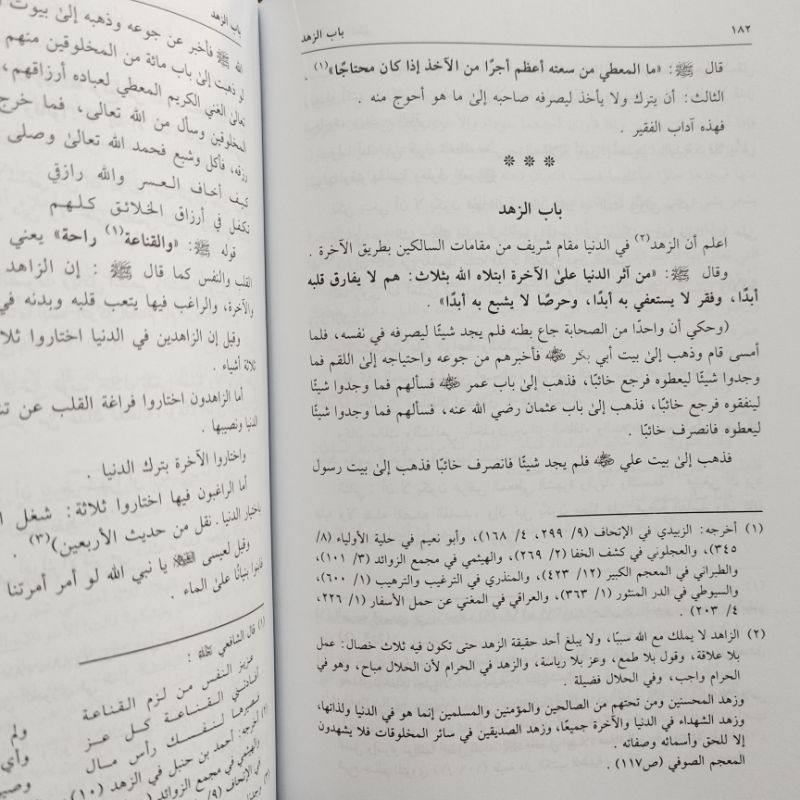 ١٨٢ باب الزهد
قال ﷺ: «ما المعطي من سعته أعظم أجرًا من الآخذ إذا كان محتاجًا»(١).
الثالث: أن يترك ولا يأخذ ليصرفه صاحبه إلىٰ ما هو أحوج منه .
فهذه آداب الفقير .
* * *
باب الزهد
اعلم أن الزهد(٢) في الدنيا مقام شريف من مقامات السالكين بطريق الآخرة .
وقال ﷺ: «من آثر الدنيا علىٰ الآخرة ابتلاه الله بثلاث: هم لا يفارق قلبه
أبدًا، وفقر لا يستعفي به أبدًا، وحرصًا لا يشبع به أبدًا» .
(وحكي أن واحدًا من الصحابة جاع بطنه فلم يجد شيئًا ليصرفه في نفسه، فلما
أمسى قام وذهب إلىٰ بيت أبي بكر ﵁ فأخبرهم من جوعه واحتياجه إلىٰ اللقم فما
وجدوا شيئًا ليعطوه فرجع خائبًا، فذهب إلىٰ باب عمر ﵁ فسألهم فما وجدوا شيئًا
لينفقوه فرجع خائبًا، فذهب إلىٰ باب عثمان رضي الله عنه، فسألهم فما وجدوا شيئًا
ليعطوه فانصرف خائبًا .
فذهب إلىٰ بيت علي ﵁ فلم يجد شيئًا فانصرف خائبًا فذهب إلىٰ بيت رسول
(١) أخرجه: الزبيدي في الإتحاف (٩/ ٢٩٩، ٤/ ١٦٨)، وأبو نعيم في حلية الأولياء (٨/
٣٤٥)، والعجلوني في كشف الخفا (٢/ ٢٦٩)، والهيثمي في مجمع الزوائد (٣/ ١٠١)،
والطبراني في المعجم الكبير (١٢/ ٤٢٣)، والمنذري في الترغيب والترهيب (١/ ٦٠٠)،
والسيوطي في الدر المنثور (١/ ٣٦٣)، والعراقي في المغني عن حمل الأسفار (١/ ٢٢٦،
٤/ ٢٠٣) .
(٢) الزاهد لا يملك مع الله سببًا، ولا يبلغ أحد حقيقة الزهد حتى تكون فيه ثلاث خصال: عمل
بلا علاقة، وقول بلا طمع، وعز بلا رياسة، والزهد في الحرام لأن الحلال مباح، وهو في
الحرام واجب، وفي الحلال فضيلة .
وزهد المحسنين ومن تحتهم من الصالحين والمؤمنين والمسلمين إنما هو في الدنيا ولذاتها،
وزهد الشهداء في الدنيا والآخرة جميعًا، وزهد الصديقين في سائر المخلوقات فلا يشهدون
إلا للحق وأسمائه وصفاته .
المعجم الصوفي (ص١١٧) .
باب الزهد
الله ﷺ فأخبر عن جوعه وذهبه إلىٰ بيوت
لو ذهبت إلىٰ باب مائة من المخلوقين منهم
تعالىٰ الغني الكريم المعطي لعباده أرزاقهم،
المخلوقين وسأل من الله تعالى، فما خرج
رزقه، فأكل وشبع فحمد الله تعالىٰ وصلى
كيف أخاف العسر والله رازقي
تكفل في أرزاق الخلائق كلهم
قوله ﷺ: «والقناعة(١) راحة» يعني
القلب والنفس كما قال ﷺ : إن الزاهد
والآخرة، والراغب فيها يتعب قلبه وبدنه في
وقيل إن الزاهدين في الدنيا اختاروا ثلاثة
ثلاثة أشياء .
أما الزاهدون اختاروا فراغة القلب عن
الدنيا ونصيبها .
واختاروا الآخرة بترك الدنيا .
أما الراغبون فيها اختاروا ثلاثة: شغل
باختيار الدنيا . نقل من حديث الأربعين)(٣) .
وقيل لعيسى ﵇ يا نبي الله لو أمر أمرتنا
فابنوا بنيانًا علىٰ الماء .
(١) قال الشافعي ﵀ :
عزيز النفس من لزم القناعة ولم
أفادتني القناعة كل عز وأي
فصيرها لنفسك رأس مال وصير
(٢) أخرجه: أحمد بن حنبل في الزهد (١٠)
والهيثمي في مجمع الزوائد
في الإتحاف (٩/